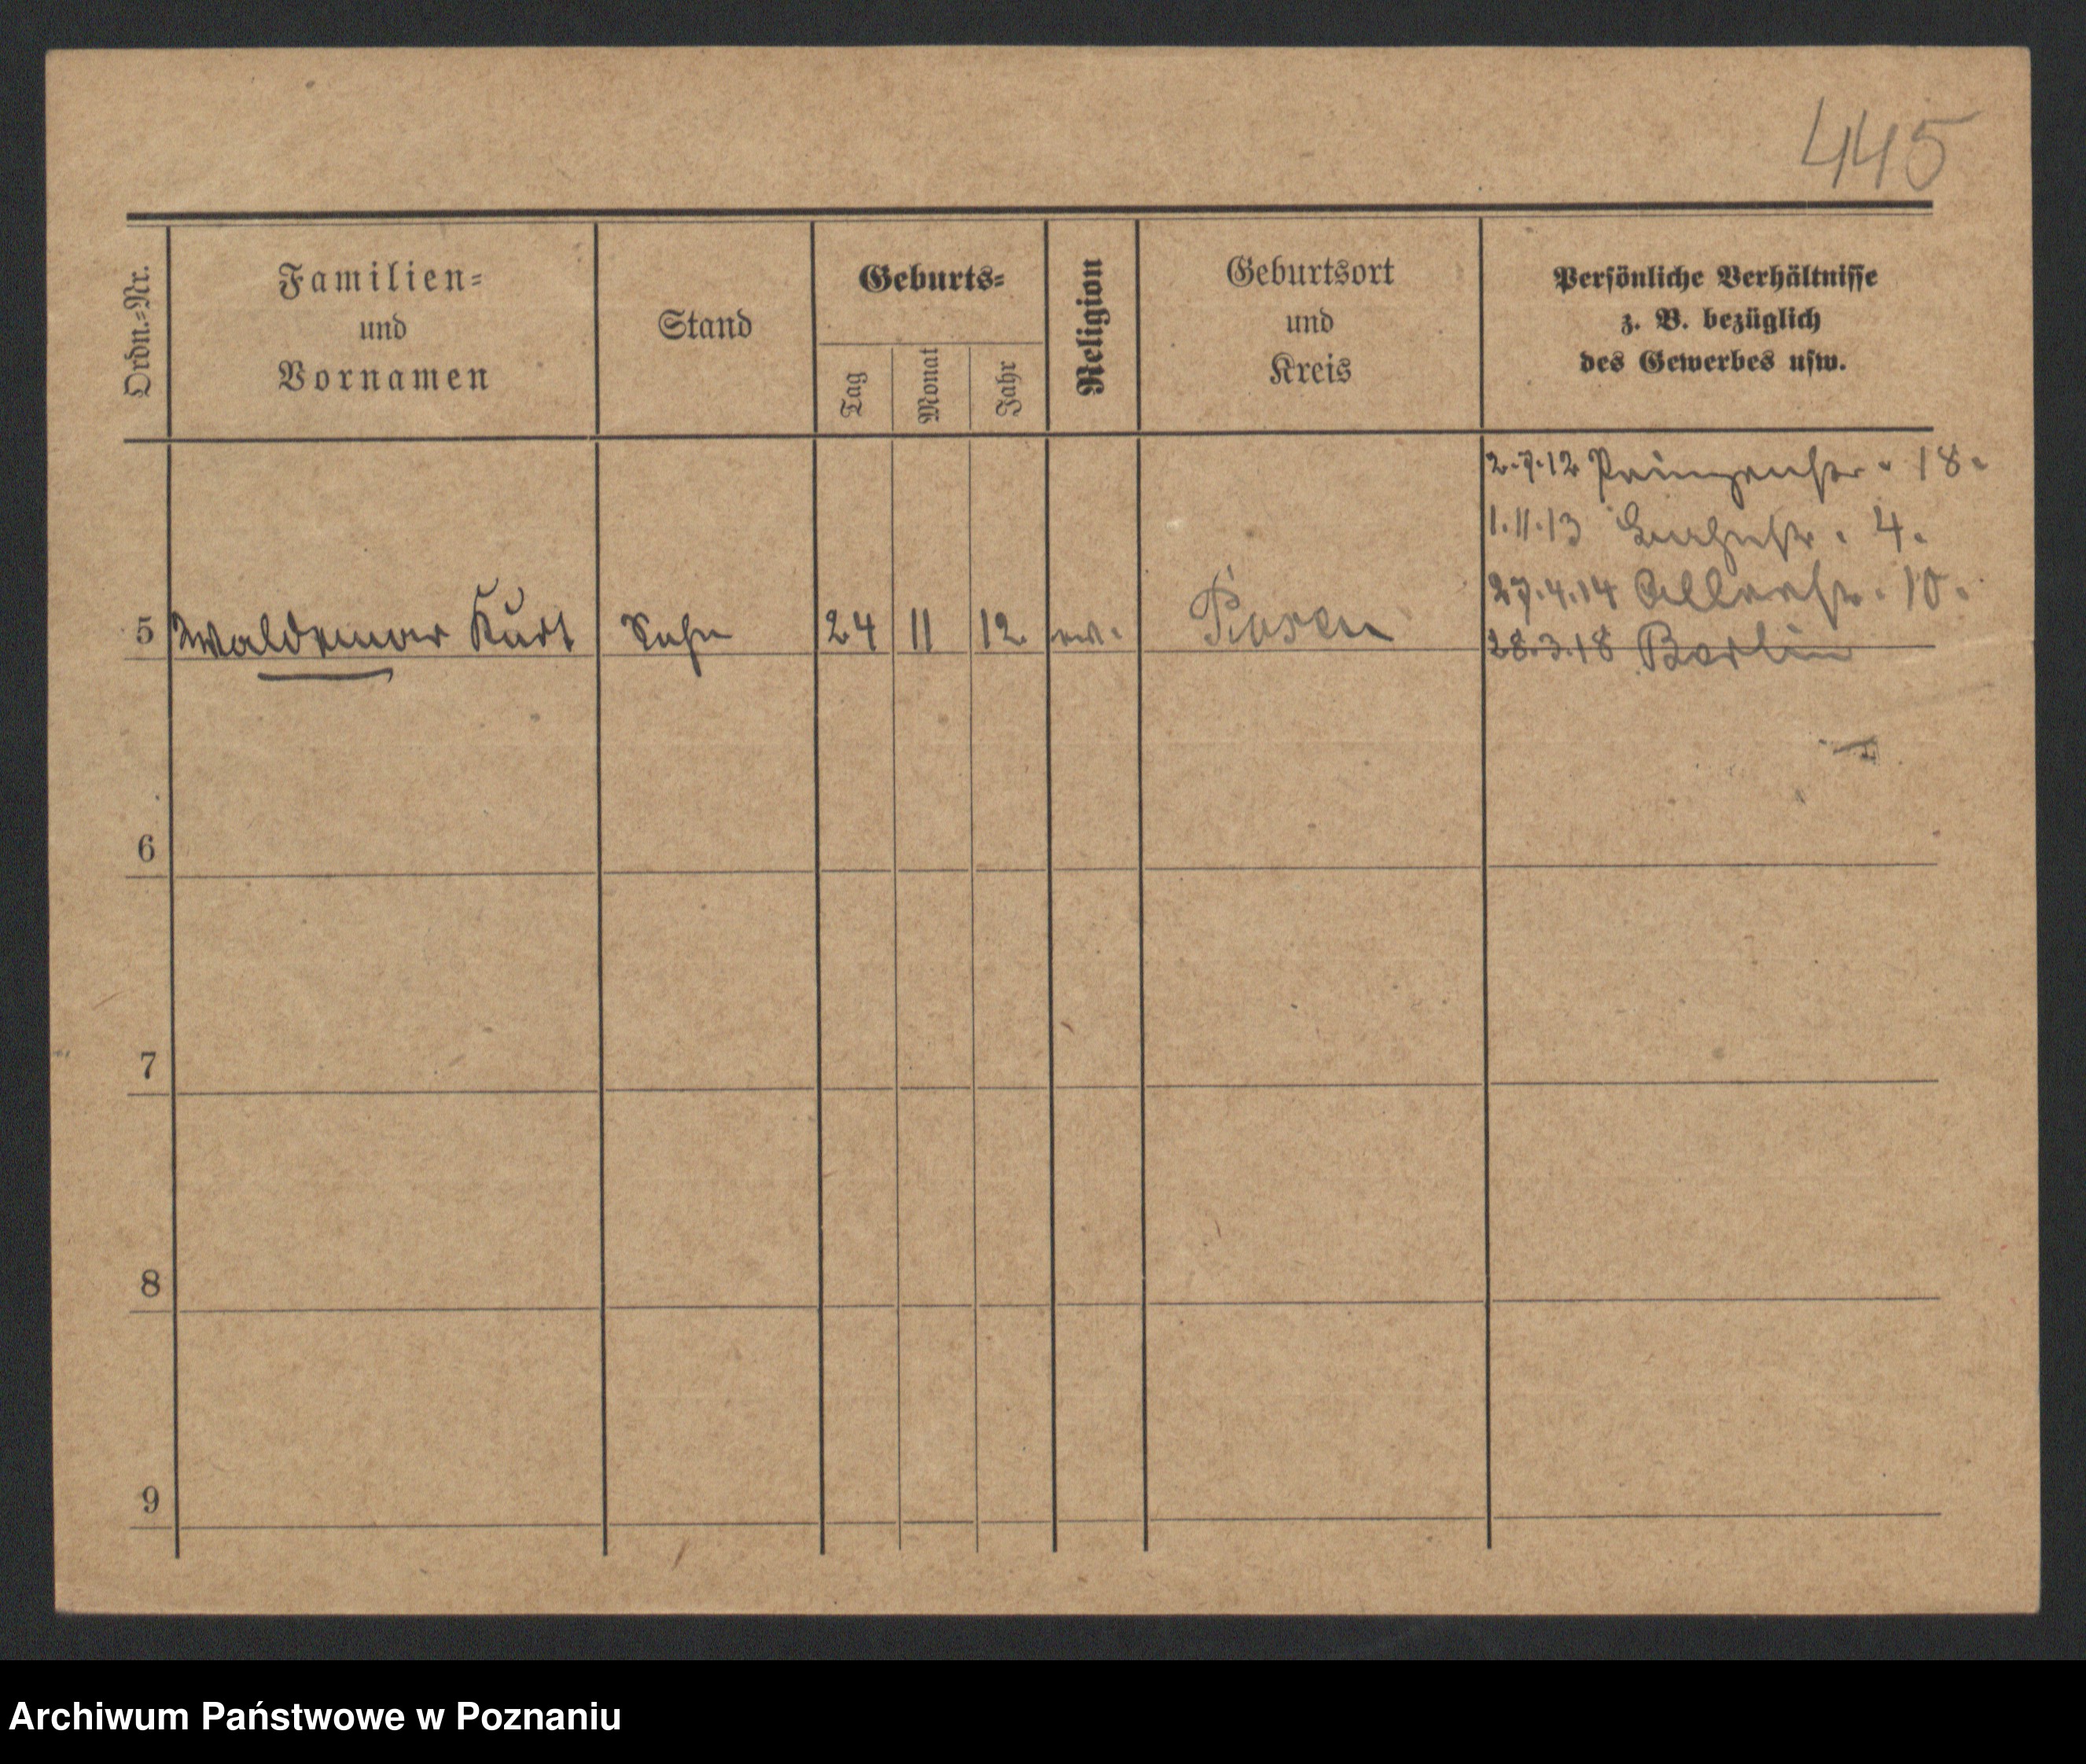 445
Ordn.=Nr.
Familien=
und
Vornamen
Stand
Geburts=
Tag
Monat
Jahr
Religion
Geburtsort
und
Kreis
Persönliche Verhältnisse
z. B. bezüglich
des Gewerbes usw.
2.7.12 Prinzenstr. 18.
1.11.13 4.
27.4.14 10.
5 Waldemar Kurt Sohn 24 11 12 ev. Posen
28.3.18 Berlin
6
7
8
9
Archiwum Państwowe w Poznaniu